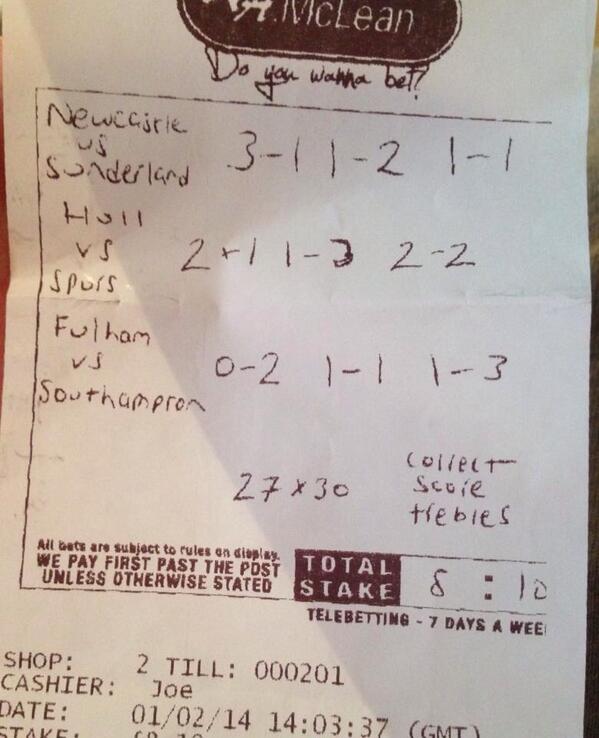 McLean
Do you wanna bet?
Newcastle
vs
Sunderland
3-1 1-2 1-1
Hull
vs
Spurs
2-1 1-3 2-2
Fulham
vs
Southampron
0-2 1-1 1-3
27 x 30
collect
score
trebles
All bets are subject to rules on display.
WE PAY FIRST PAST THE POST
UNLESS OTHERWISE STATED
TOTAL
STAKE
8 : 10
TELEBETTING - 7 DAYS A WEE
SHOP: 2 TILL: 000201
CASHIER: Joe
DATE: 01/02/14 14:03:37 (GMT)
STAKE: